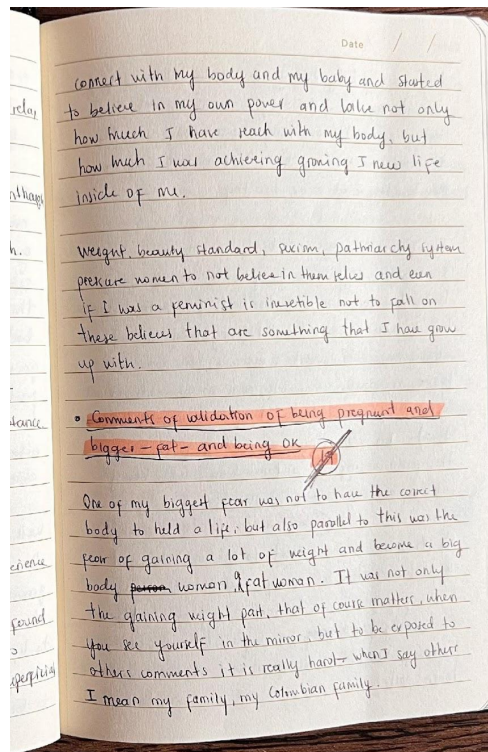 Date / /
connect with my body and my baby and started
to believe in my own power and value not only
how much I have reach with my body, but
how much I was achieving growing I new life
inside of me.
Weight, beauty standard, sexism, pathriarchy system
pressure women to not believe in themselves and even
if I was a feminist is inevetible not to fall on
these believes that are something that I have grow
up with.
• Comments of validation of being pregnant and
bigger - fat - and being OK
One of my biggest fear was not to have the correct
body to held a life, but also parallel to this was the
fear of gaining a lot of weight and become a big
body person woman, a fat woman. It was not only
the gaining weight part, that of course matters, when
you see yourself in the mirror, but to be exposed to
others comments it is really hard - when I say others
I mean my family, my Colombian family.
relax
h.
tance
erience
found
o
uperficial